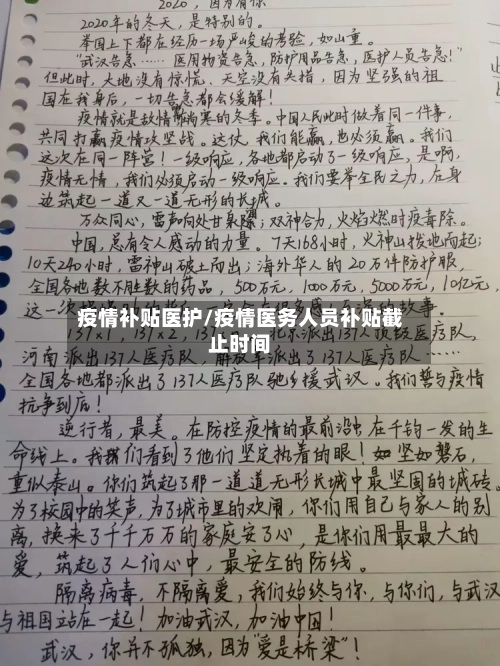 2020，因为有你
2020年的冬天，是特别的。
举国上下都在经历一场严峻的考验，如山重。
"武汉告急……医用物资告急，防护用品告急，医护人员告急！"
但此时，大地没有惊慌、天空没有失措，因为坚强的祖
国在我身后，一切告急都会缓解！
疫情就是敌情 寒的冬季。中国人民此时做着同一件事，
共同打赢疫情攻坚战。这仗，我们能赢，也必须赢。我们
这次在同一阵营！一级响应，各地都启动了一级响应，是啊，
疫情无情，我们必须启动一级响应。我们要举全民之力，在身
边筑起一道又一道无形的长城。
万众同心，雷声响处甘泉 ；双神合力，火焰燃时疫毒除。
中国，总有令人感动的力量。7天168小时，火神山拔地而起；
10天240小时，雷神山破土而出；海外华人的20万件防护服，
全国各地数不胜数的药品，500万元，1000万元，5000万元，10亿元，
这一 的故事。
疫情补贴医护/疫情医务人员补贴截
137×1，137×2，137 顶级医疗队，
止时间
河南派出137人医疗队，解放军派出了137人医疗队……
全国各地都派出了137人医疗队驰援武汉。我们誓与疫情
抗争到底！
逆行者，最美。在防控疫情的最前沿 在千钧一发的生
命线上。我 们看到了他们坚定执着的眼！如坚如磐石，
重似泰山。你们筑起了那一道道无形长城中最坚固的城砖。
为了校园中的笑声，为了城市里的欢闹，你们用自己与家人的别
离，换来了千千万万的家庭安了心，是你们用最最大的
爱，筑起了人们心中，最安全的防线。
隔离病毒，不隔离爱，我们始终与你，与你们，与武汉
与祖国站在一起！加油武汉，加油中国！
武汉，你并不孤独，因为"爱是桥梁"！